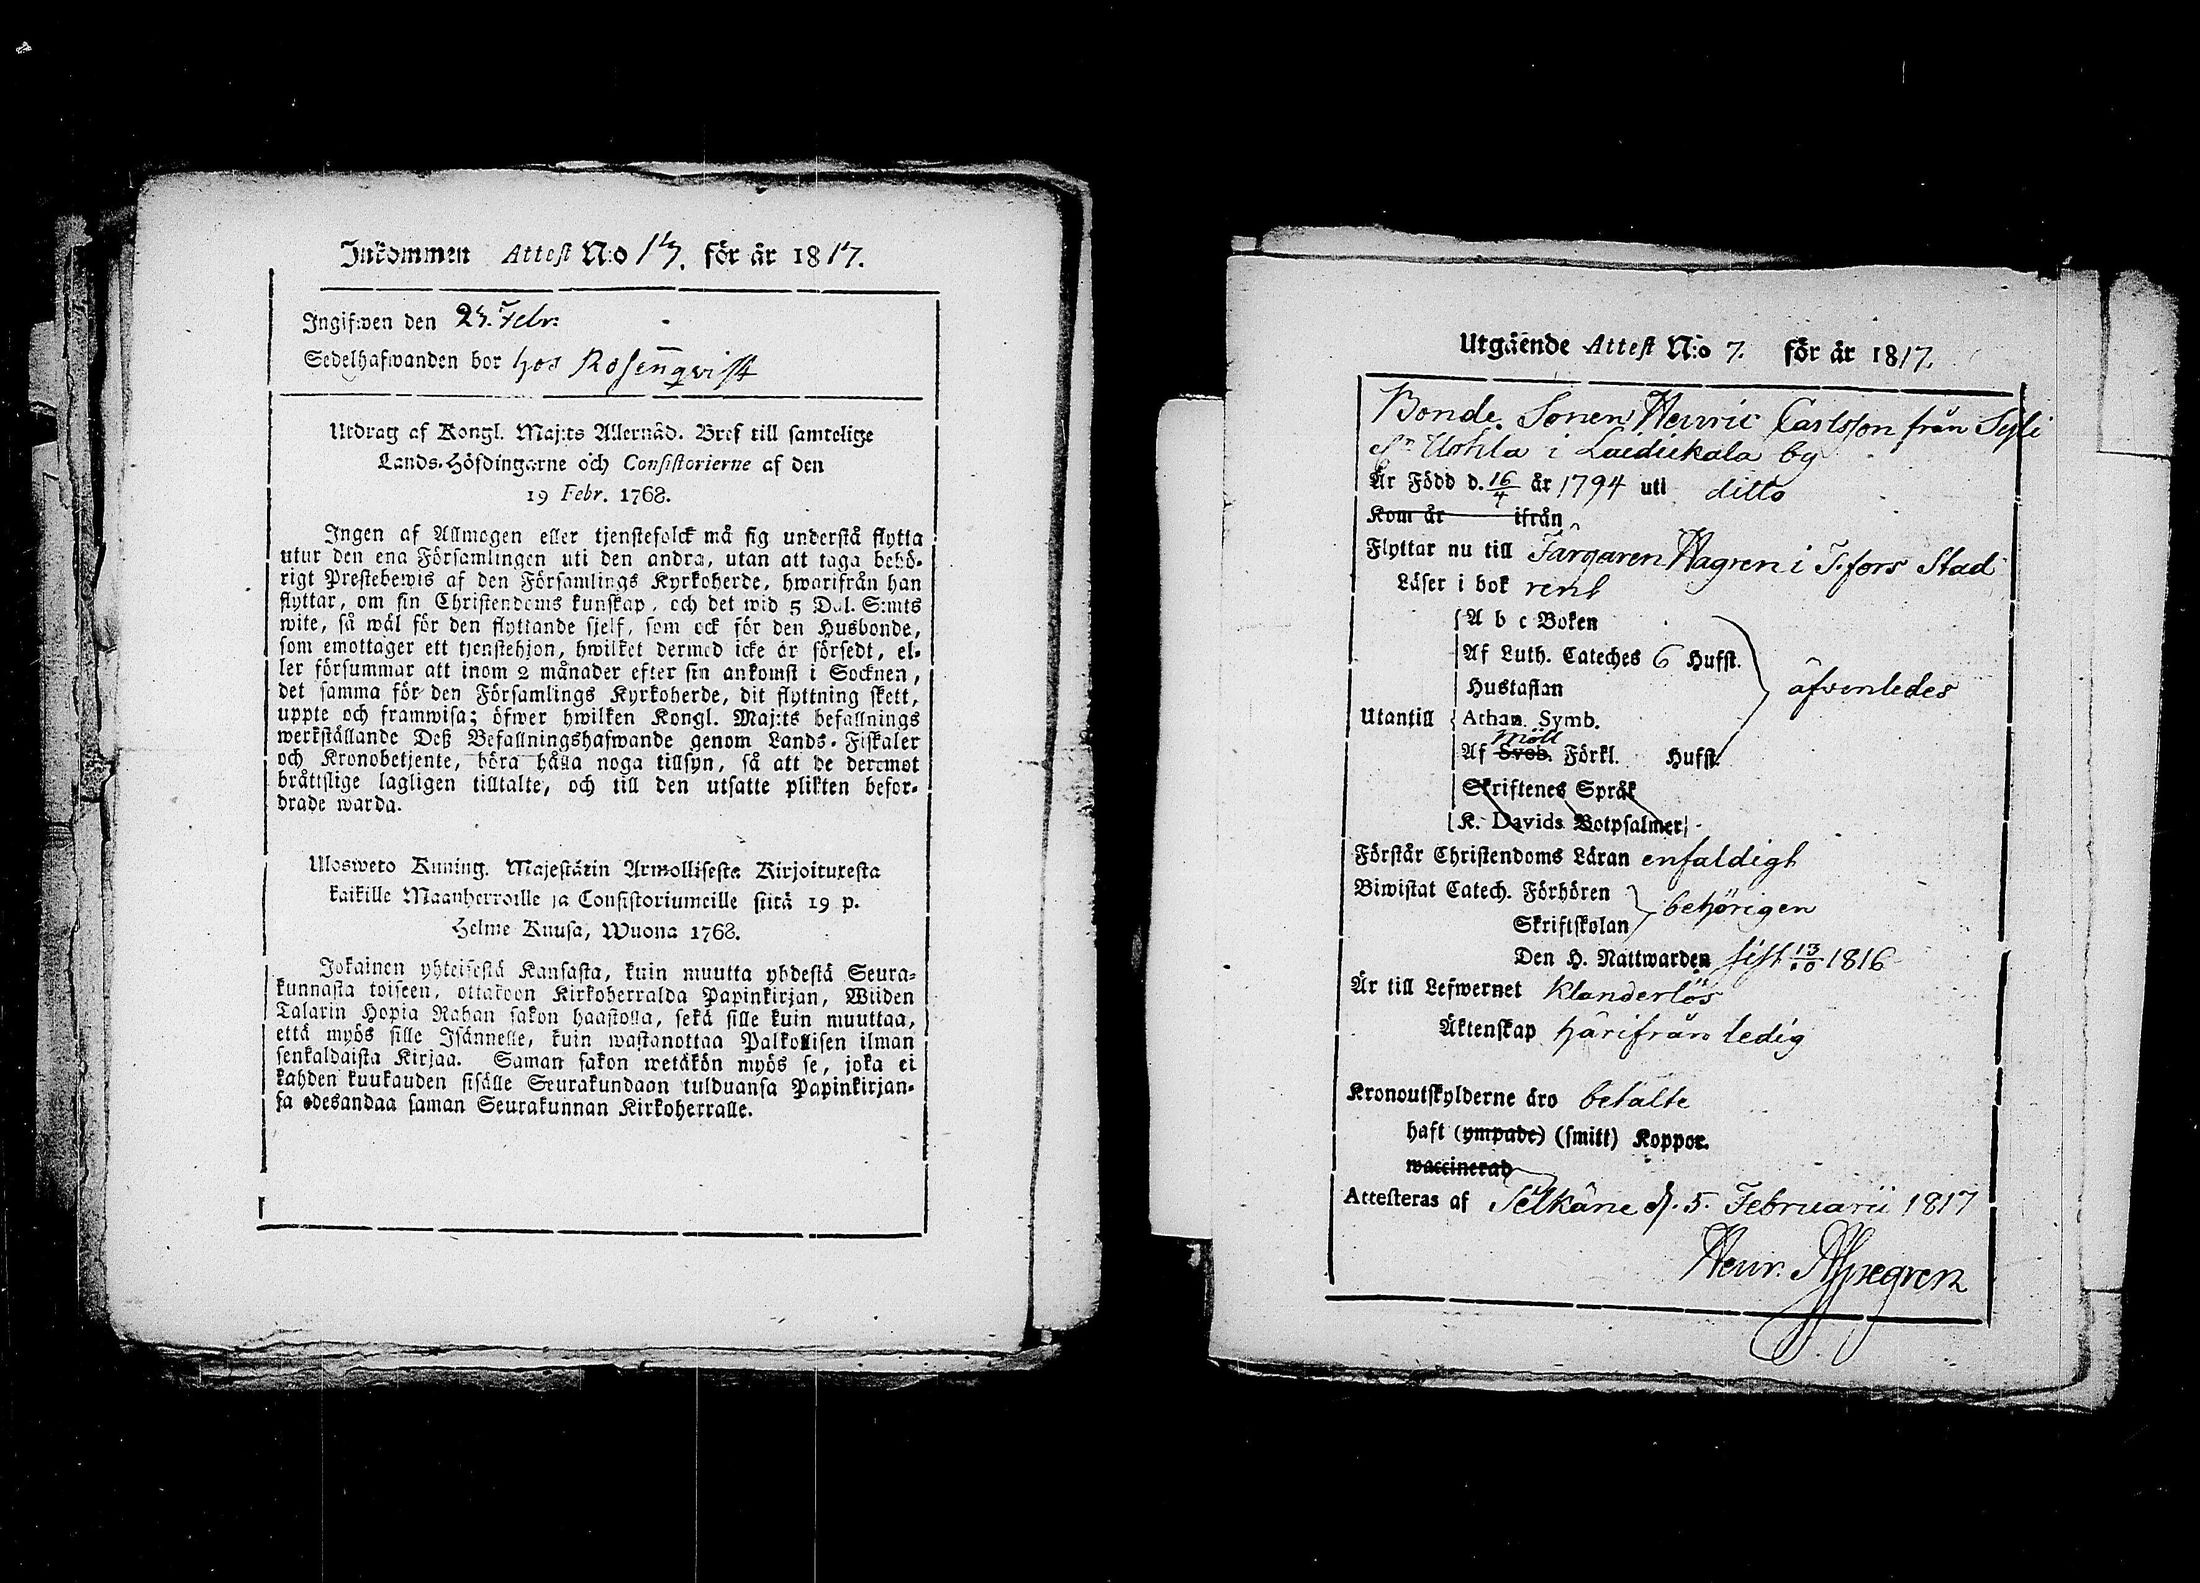 Inkommen Attest N:o 17. för år 1817.
Ingifwen den 25. Febr.
Sedelhafwanden bor hos Rosenqvist
Utdrag af Kongl. Maj:ts Allernåd. Bref till samtelige
Lands-Höfdingarne och Consistorierne af den
19 Febr. 1768.
Ingen af Allmogen eller tjenstefolck må sig understå flytta
utur den ena Församlingen uti den andra, utan att taga behö-
rigt Prestebewis af den Församlings Kyrkoherde, hwarifrån han
flyttar, om sin Christendoms kunskap, och det wid 5 Dal. S:mts
wite, så wäl för den flyttande sjelf, som ock för den Husbonde,
som emottager ett tjenstehjon, hwilket dermed icke är försedt, el-
ler försummar att inom 2 månader efter sin ankomst i Socknen,
det samma för den Församlings Kyrkoherde, dit flyttning skett,
uppte och framwisa; öfwer hwilken Kongl. Maj:ts befallnings
werkställande Deß Befallningshafwande genom Lands-Fiskaler
och Kronobetjente, böra hålla noga tillsyn, så att de deremot
bråttslige lagligen tilltalte, och till den utsatte plikten befor-
drade warda.
Ulosweto Kuning. Majestätin Armollisesta Kirjoituxesta
kaikille Maanherroille ja Consistoriumeille siitä 19 p.
Helme Kuusa, Wuona 1768.
Jokainen yhteisestä Kansasta, kuin muutta yhdestä Seura-
kunnasta toiseen, ottakoon Kirkoherralda Papinkirjan, Wiiden
Talarin Hopia Rahan sakon haastolla, sekä sille kuin muuttaa,
että myös sille Isännelle, kuin wastanottaa Palkollisen ilman
senkaldaista Kirjaa. Saman sakon wetäkön myös se, joka ei
kahden kuukauden sisälle Seurakundaan tulduansa Papinkirjan-
sa edesandaa saman Seurakunnan Kirkoherralle.
Utgående Attest N:o 7. för år 1817.
Bonde Sonen Henric Carlsson från
Uohla i Laidiekala by
Är Född d. 16/4 år 1794 uti ditto
Kom år ifrån
Flyttar nu till Färgaren Hagren i T.fors Stad
Läser i bok rent
A b c Boken
Af Luth. Cateches 6 Hufst.
Hustaflan
äfvenledes
Utantill
Athan. Symb.
Möll
Af Sveb. Förkl. Hufst.
Skriftenes Språk
K. Davids Botpsalmer
Förstår Christendoms Läran enfaldigt
Biwistat Catech. Förhören
behörigen
Skriftskolan
Den H. Nattwarden sist 13/10 1816
Är till Lefwernet klanderlös
Äktenskap härifrån ledig
Kronoutskylderne äro betalte
haft (ympade) (smitt) Koppor.
waccinerad
Attesteras af Selkäne d. 5. Februarii 1817
Henr. Aspegren